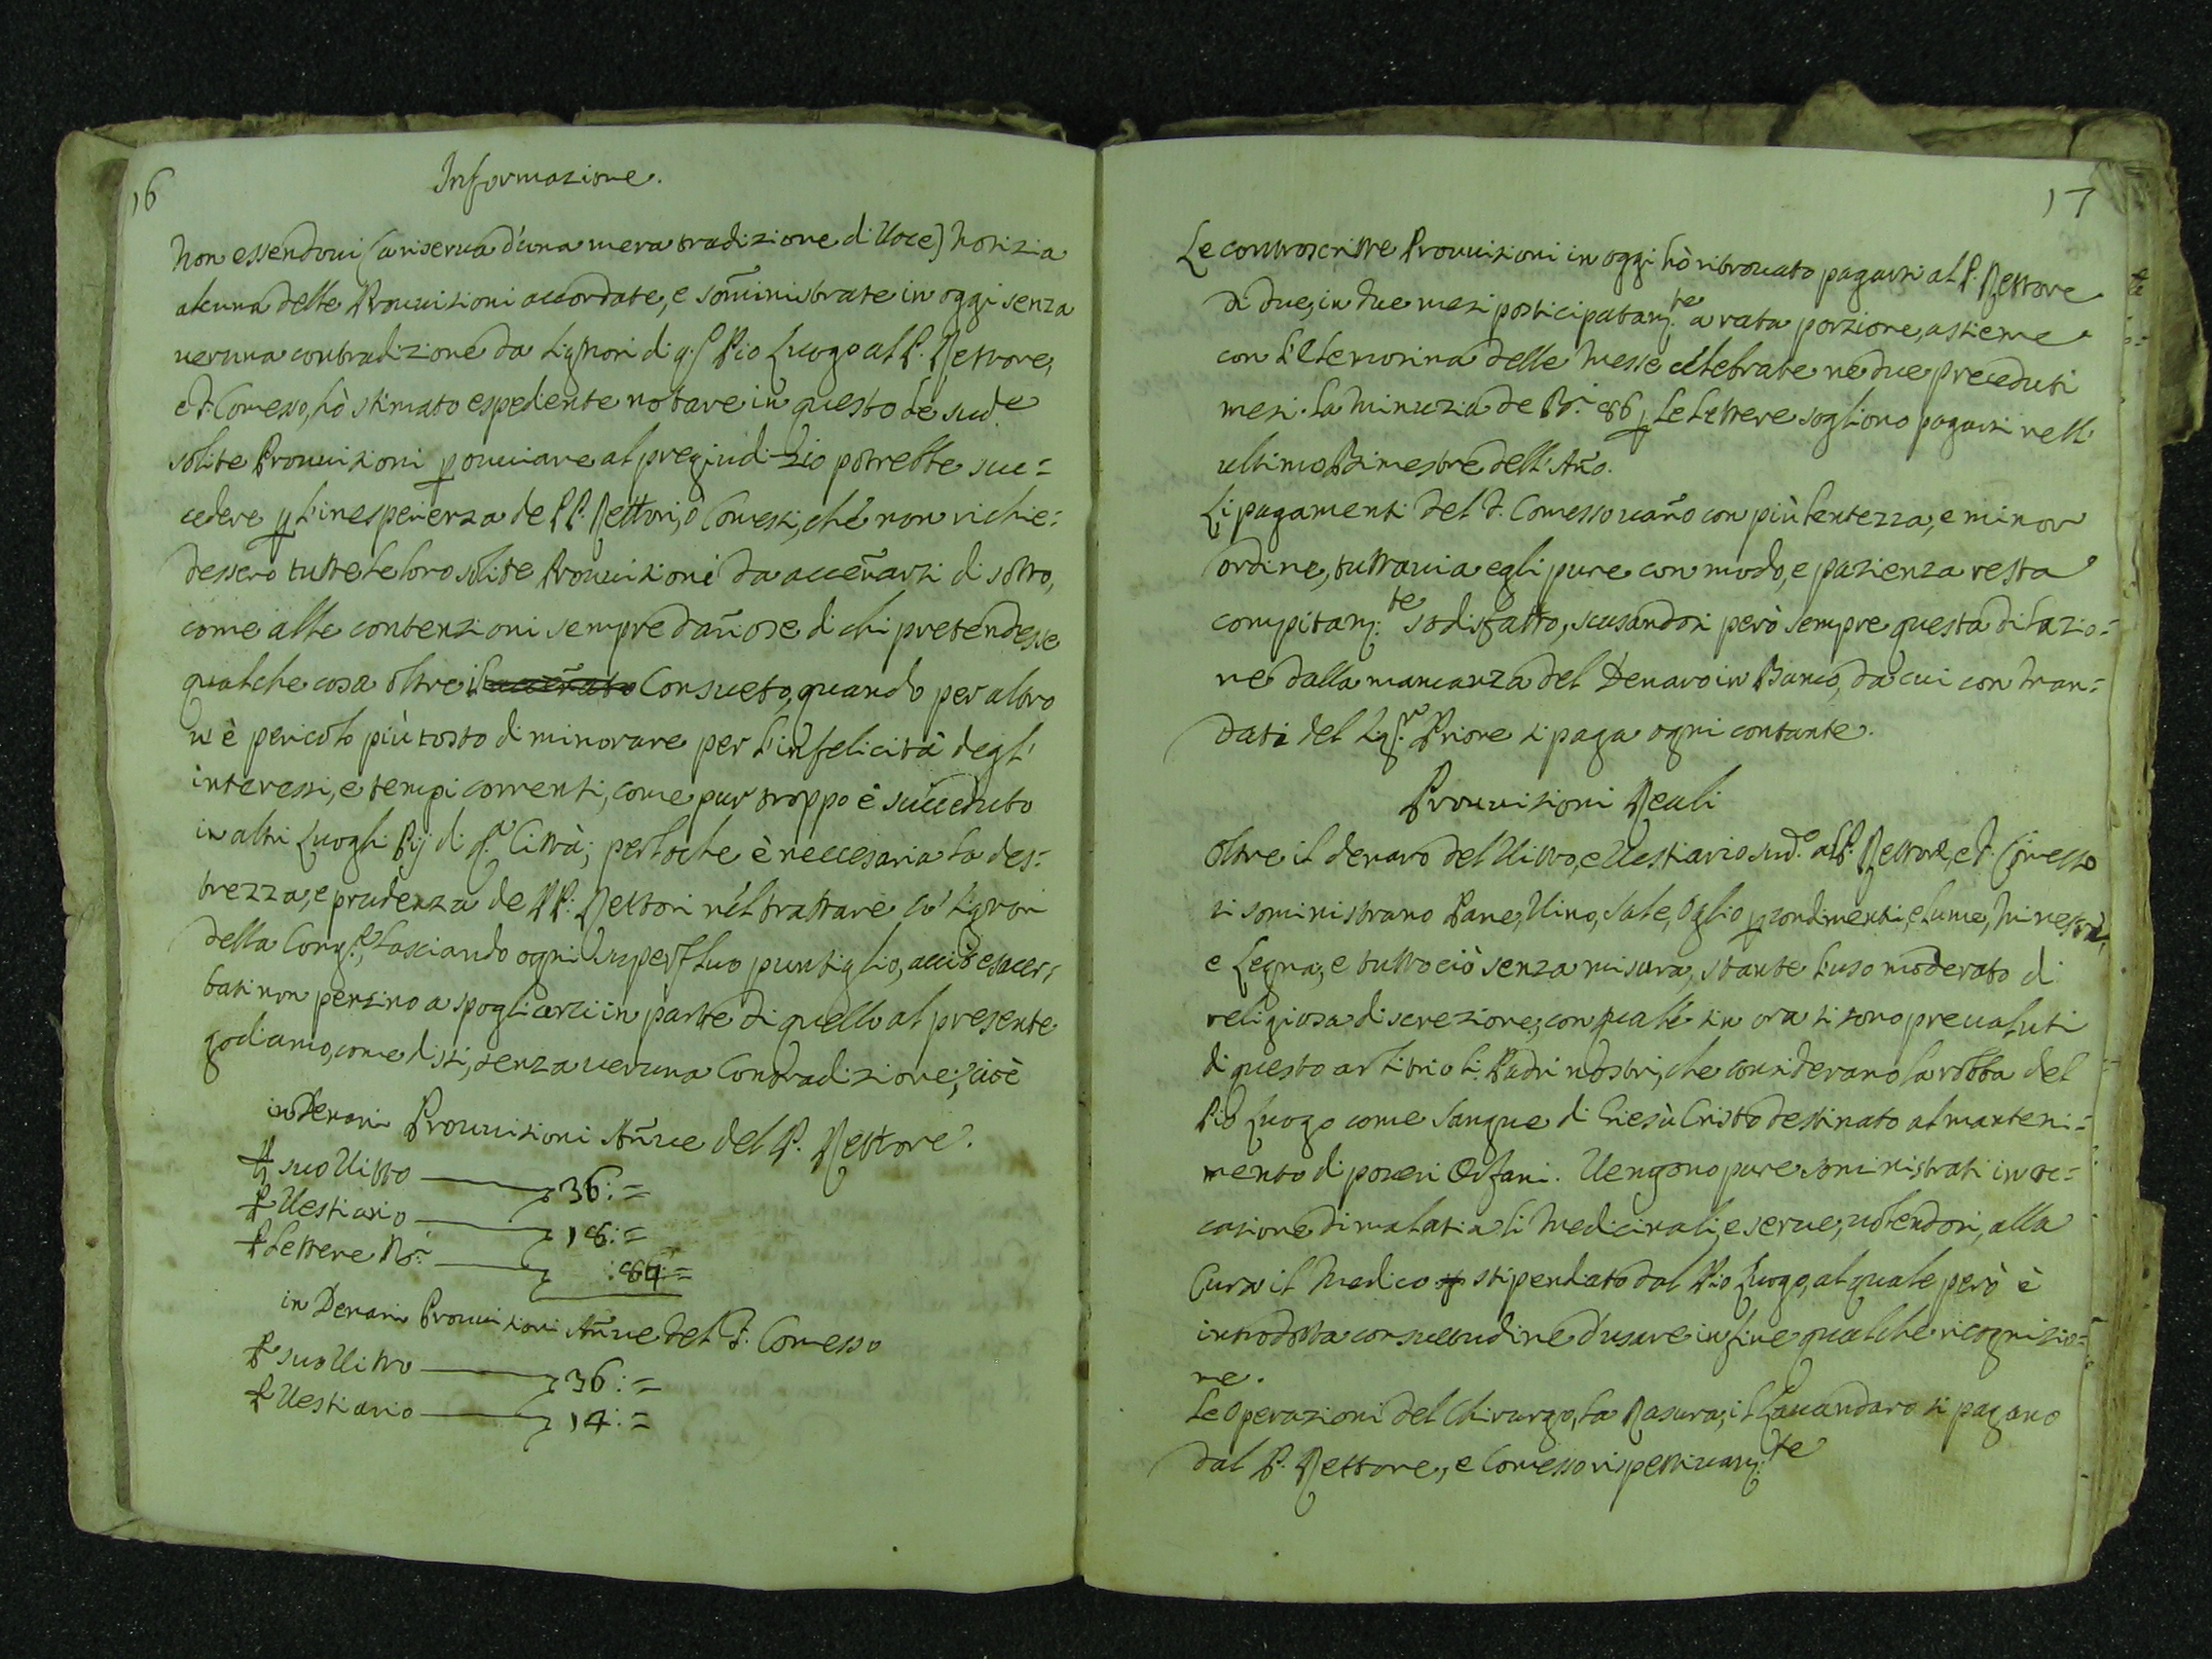 16
Informazione.
Non essendoui (a riserua d'una mera tradizione di Voce) Notizia
alcuna delle Prouuisioni accordate, e sõministrate in oggi senza
ueruna contradizione da Signori di q.sto Pio Luogo al P. Rettore,
e F. Comesso, hò stimato espediente notare in questo le sud.e
solite Prouuisioni p ouuiare al pregiudi-zio potrebbe suc=
cedere p l'inesperienza de PP. Rettori, ò Comessi, che non richie=
dessero tutte le loro solite Prouuisioni da accẽnarsi di sotto,
come alle contenzioni sempre dañose di chi pretendesse
qualche cosa oltre il accẽnato Consueto, quando per altro
u'è pericolo più tosto di minorare per l'infelicità degl'
interessi, e tempi correnti, come pur troppo è succeduto
in altri Luoghi Pij di q.ta Città; perloche è neccesaria la des=
trezza, e prudenza de PP. Rettori nel trattare co' Signori
della Cong.e, lasciando ogni superfluo puntiglio, acciò esacer=
bati non pensino a spogliarci in parte di quello al presente
godiamo, come dissi, senza ueruna Contradizione; cioè
in Denari Prouuisioni Añue del P. Rettore.
P suo Uitto — 36:=
P Uestiario — 18:=
P Lettere Br. — :86:=
in Denari Prouuisioni Añue del F. Comesso
P suo Uitto — 36:=
P Uestiario — 14:=
17
Le controscritte Prouuisioni in oggi hò ritrouato pagarsi al P. Rettore
di due, in due mesi posticipatam.te a rata porzione, assieme
con l'elemosina delle Messe celebrate ne due preceduti
mesi. La minuzia de Br. 86 p le Lettere sogliono pagarsi nell'
ultimo Bimestre dell'Año.
Li pagamenti del F. Comesso uaño con più lentezza, e minor
ordine, tuttauia egli pure con modo, e pazienza resta
compitam.te sodisfatto, scusandosi però sempre questa dilazio=
ne dalla mancanza del Denaro in Banco, da cui con Man=
dati del Sig.r Priore si paga ogni contante.
Prouuisioni Reali
Oltre il denaro del Uitto, e Uestiario sud.o al P. Rettore, e F. Comesso
si somministrano Pane, Uino, Sale, Oglio p condimenti, e lume, Minestre,
e Legna; e tutto ciò senza misura, stante l'uso moderato di
religiosa discrezione, con quale sin ora si sono preualuti
di questo arbitrio li Padri nostri, che considerano la robba del
Pio Luogo come Sangue di Giesù Cristo destinato al manteni=
mento di poueri Orfani. Uengono pure sominstrati in oc=
casione di malatia li Medicinali, e serue, uolendosi, alla
Cura il Medico stipendiato dal Pio Luogo, al quale però è
introdotta consuetudine d'usare in fine qualche ricognizio=
ne.
Le Operazioni del Chirurgo, la Rasura, il Lauandaro si pagano
dal P. Rettore, e Comesso rispettiuam.te